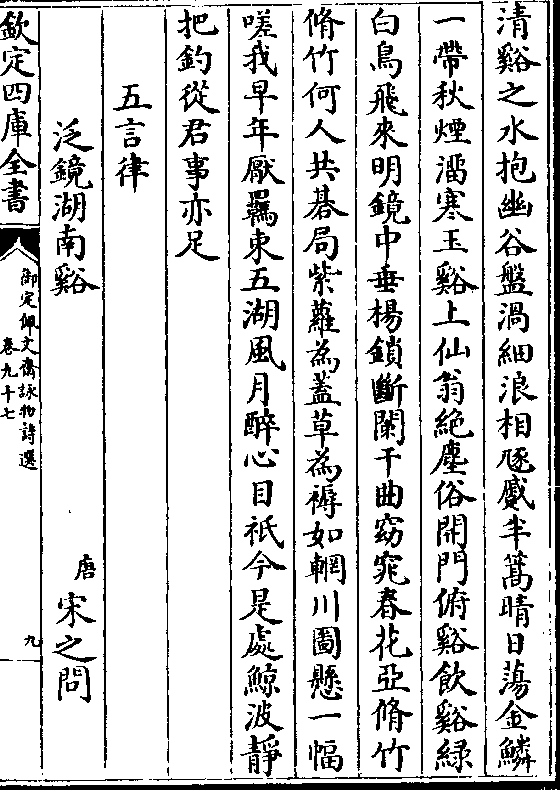 清谿之水抱幽谷盤渦細浪相豗蹙半篙晴日蕩金鱗
一帶秋煙潑寒玉谿上仙翁絶塵俗開門俯谿飲谿緑
白鳥飛來明鏡中垂楊鎖斷闌干曲窈窕春花亞脩竹
脩竹何人共棊局紫蘿為蓋草為褥如輞川圖懸一幅
嗟我早年厭羈束五湖風月醉心目祇今是處鯨波靜
把釣從君事亦足
五言律
泛鏡湖南谿
唐宋之問
欽定四庫全書
御定佩文齋詠物詩選
卷九十七
九